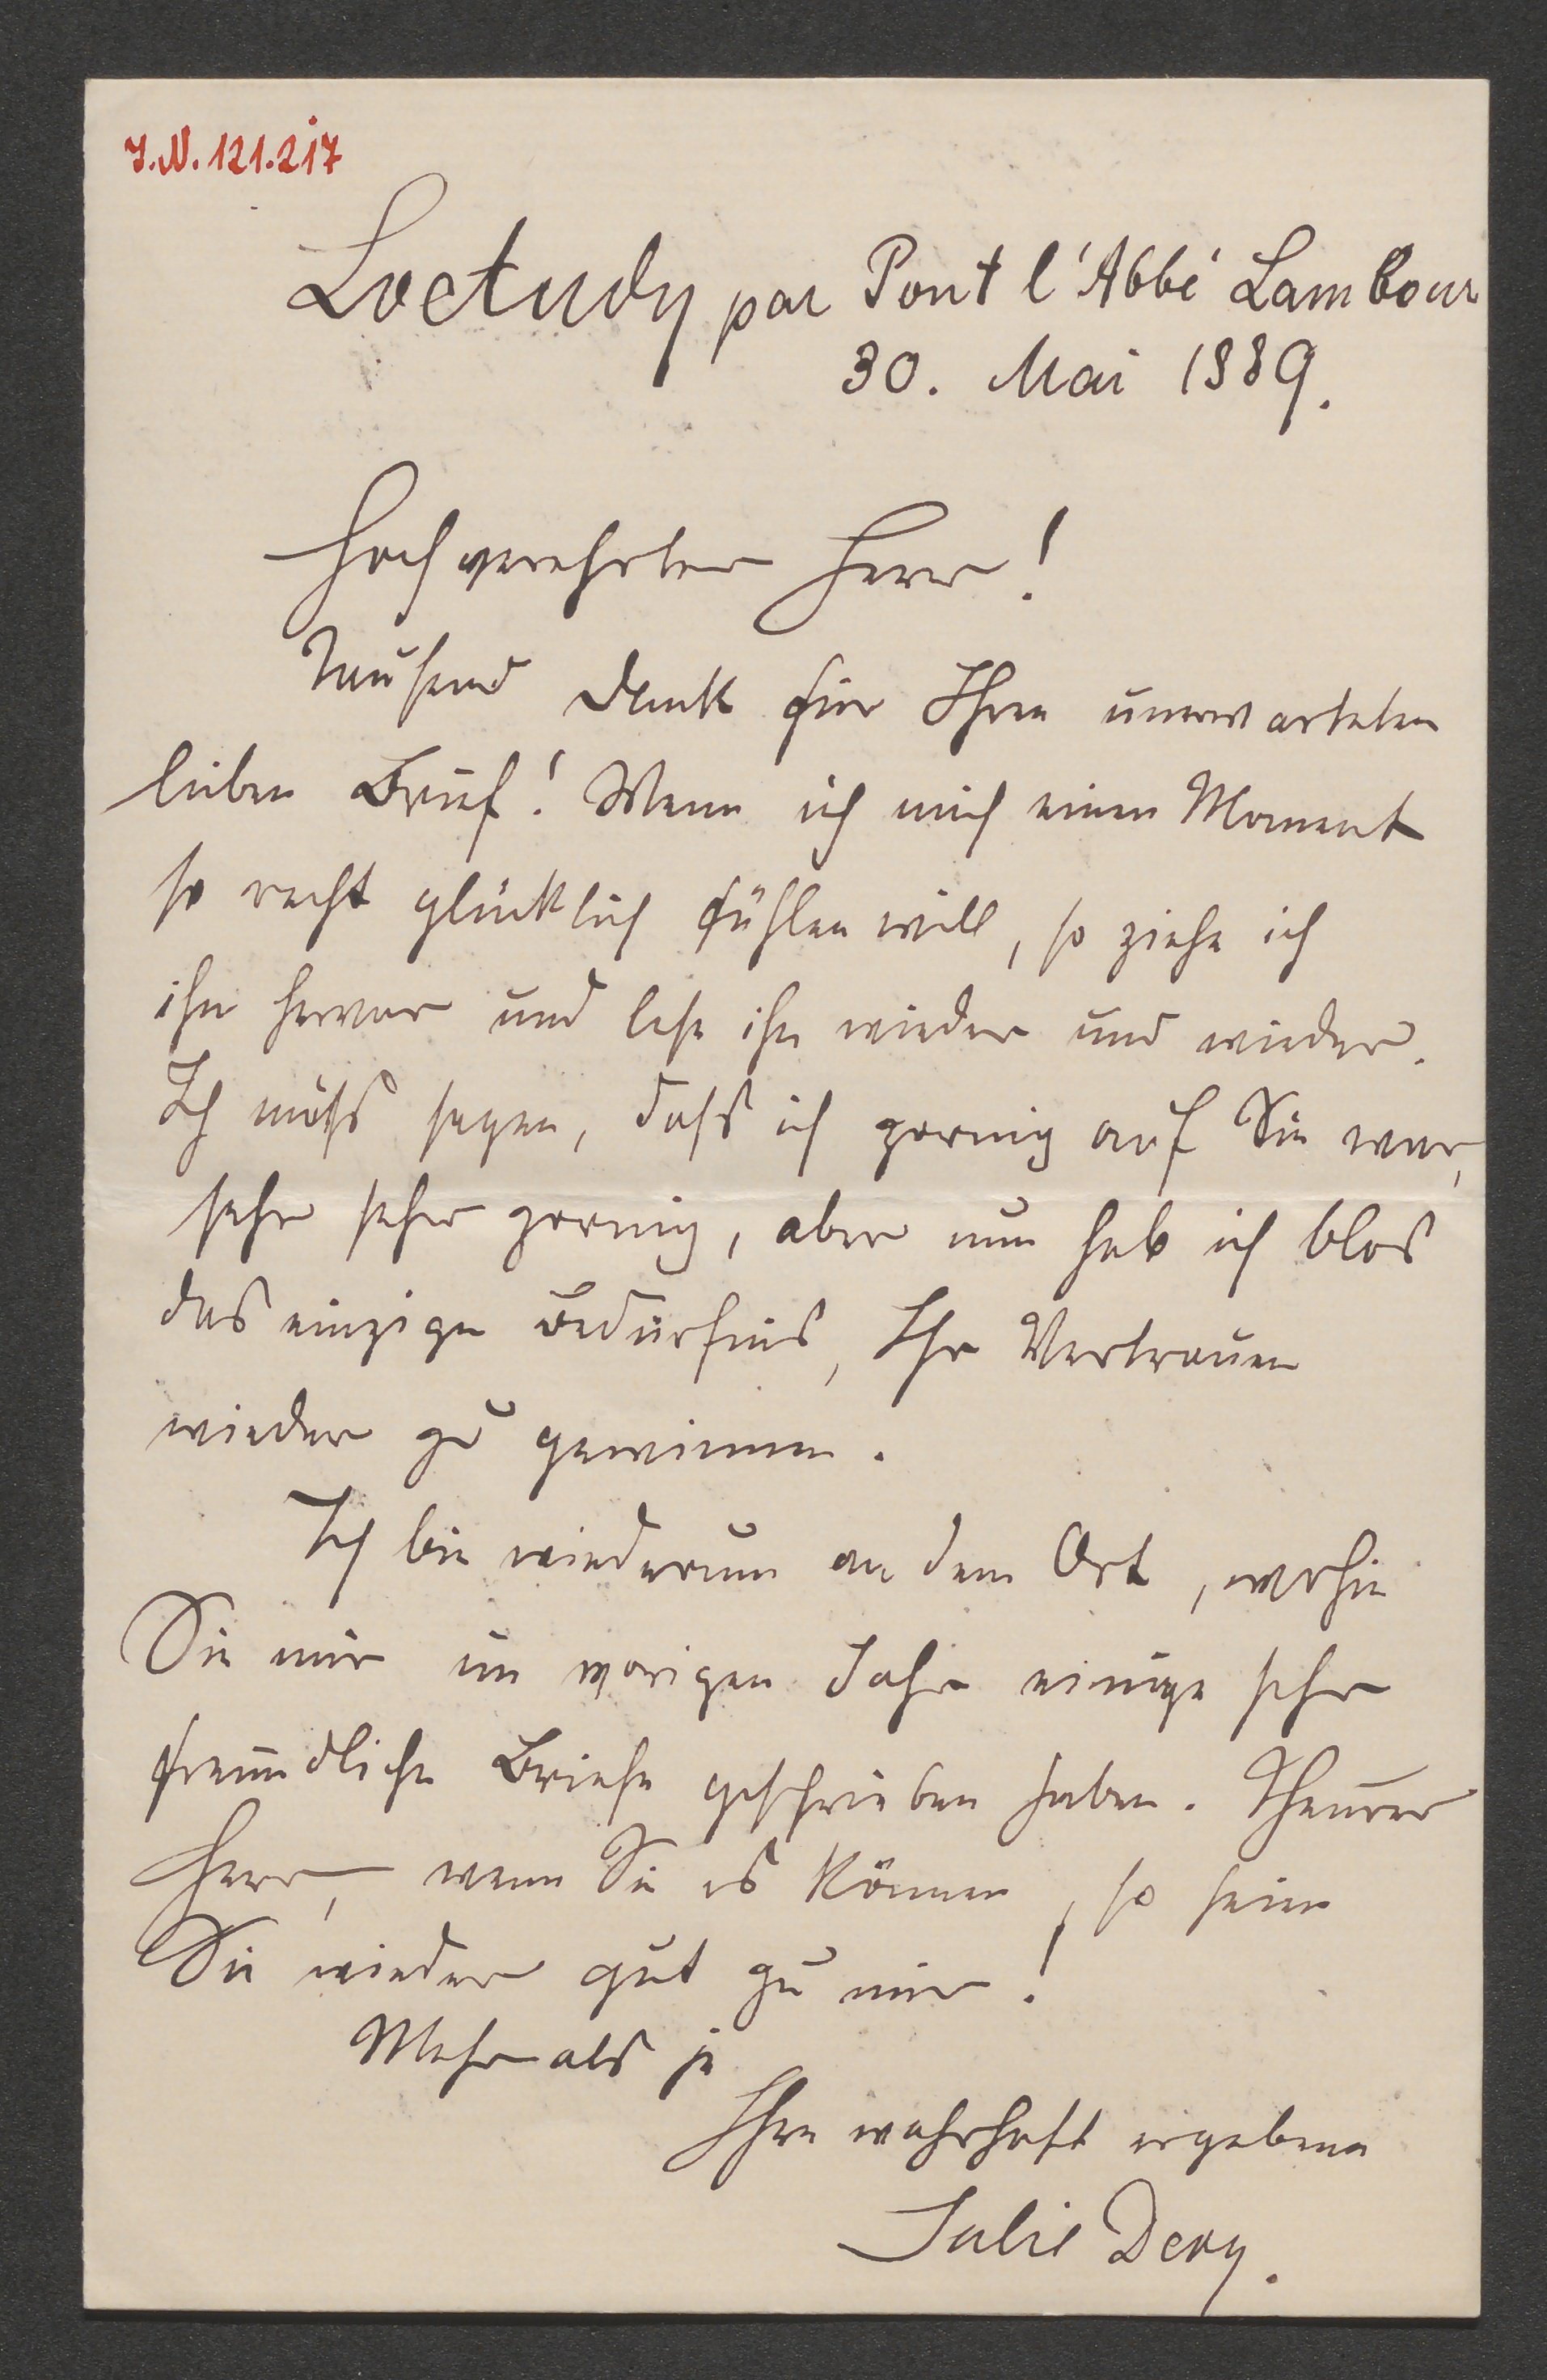 J.N. 121.217
Loctudy par Pont l'Abbé Lambour
30. Mai 1889.
Hochverehrter Herr!
Tausend Dank für Ihren unerwarteten
lieben Brief! Wenn ich mich einen Moment
so recht glücklich fühlen will, so ziehe ich
ihn hervor und lese ihn wieder und wieder.
Ich muß sagen, daß ich zornig auf Sie war,
sehr sehr zornig, aber nun hab ich blos
das einzige Bedürfnis, Ihr Vertrauen
wieder zu gewinnen.
Ich bin wiederum an dem Ort, wohin
Sie mir im vorigen Jahr einige sehr
freundliche Briefe geschrieben haben. Theurer
Herr, wenn Sie es können, so seien
Sie wieder gut zu mir!
Mehr als je
Ihre wahrhaft ergebene
Julie Dery.